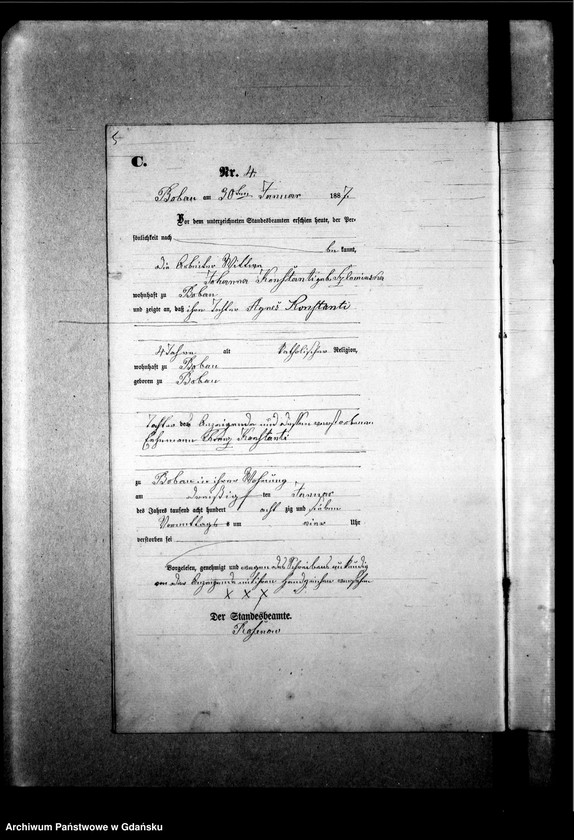 5
C.
Nr. 4.
Bobau am 30ten Januar 1887.
Vor dem unterzeichneten Standesbeamten erschien heute, der Per-
sönlichkeit nach
be kannt,
die Arbeiter Wittwe
Johanna Konstanti geb.
wohnhaft zu Bobau
und zeigte an, daß ihre Tochter Agnes Konstanti
4 Jahre alt katholischer Religion,
wohnhaft zu Bobau
geboren zu Bobau
Tochter der Anzeigende und dessen verstorbenen
Ehemann Franz Konstanti
zu Bobau in ihrer Wohnung
am dreißigsten ten Januar
des Jahres tausend acht hundert acht zig und sieben
Vormittags um vier Uhr
verstorben sei
Vorgelesen, genehmigt und wegen des Schreibens unkundig
von der Anzeigende mit ihren Handzeichen versehen
x x x
Der Standesbeamte.
Rosenow
Archiwum Państwowe w Gdańsku